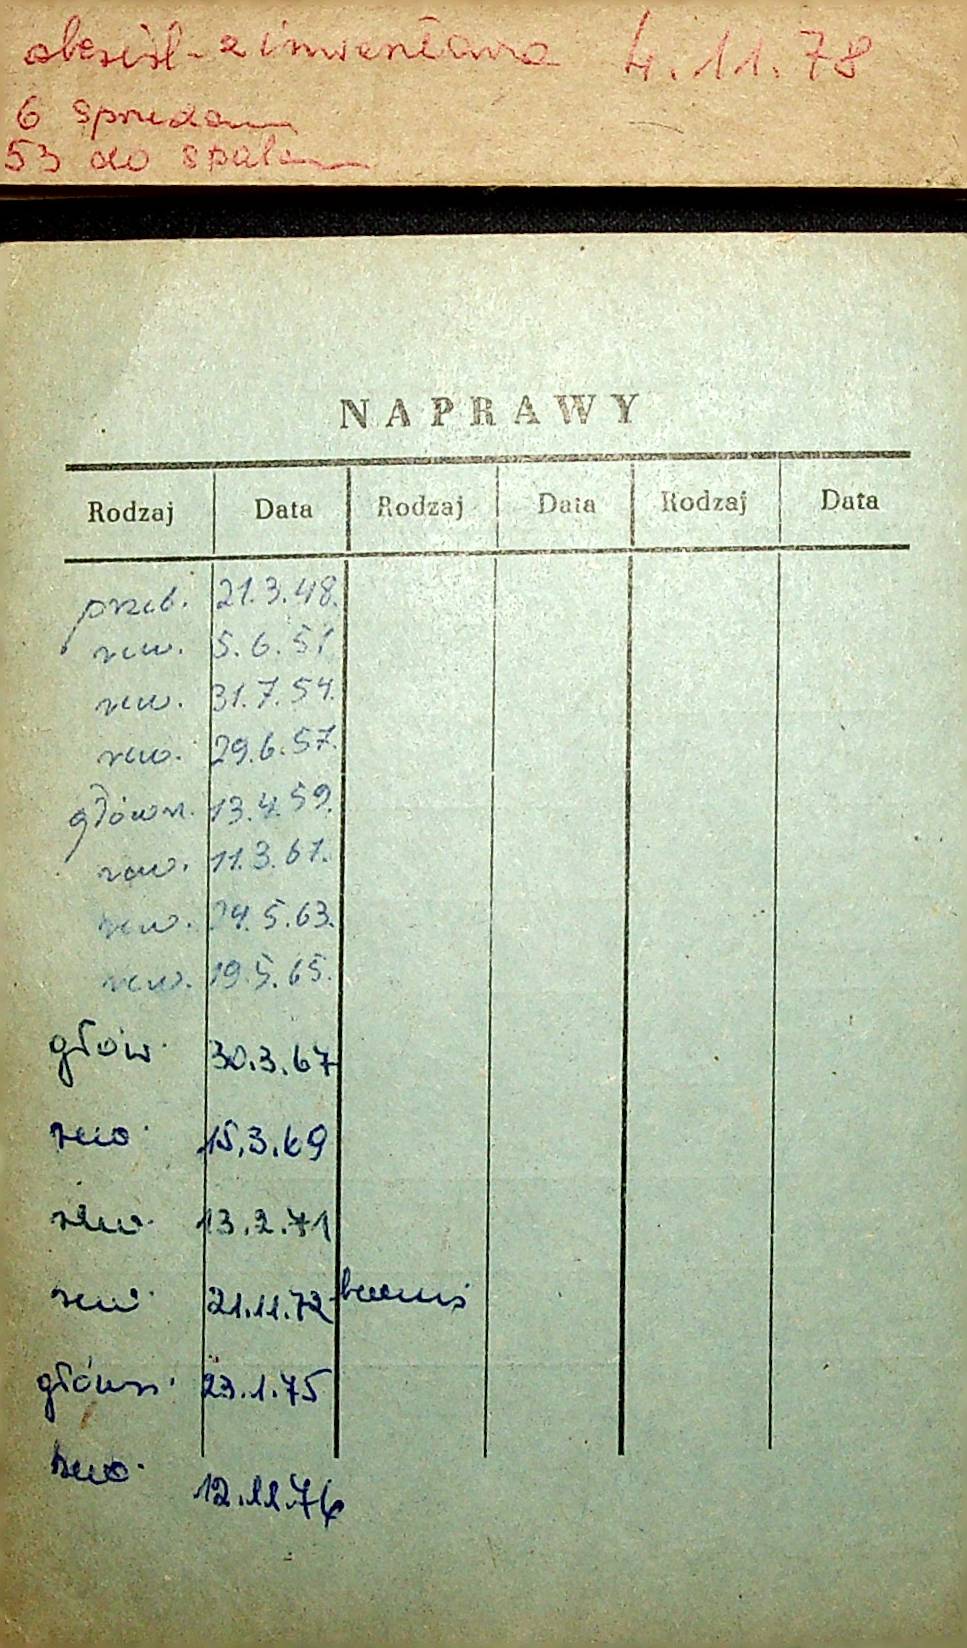 z inwentarza 4.11.78
6 sprzedano
53 do spalenia
NAPRAWY
Rodzaj Data Rodzaj Data Rodzaj Data
przeb. 21.3.48.
rew. 5.6.51
rew. 31.7.54.
rew. 29.6.57.
główn. 13.4.59.
rew. 11.3.61.
rew. 24.5.63.
rew. 19.5.65.
głów. 30.3.67
rew. 15.3.69
rew. 13.2.71
rew. 21.11.72
główn. 23.1.75
rew. 12.11.76